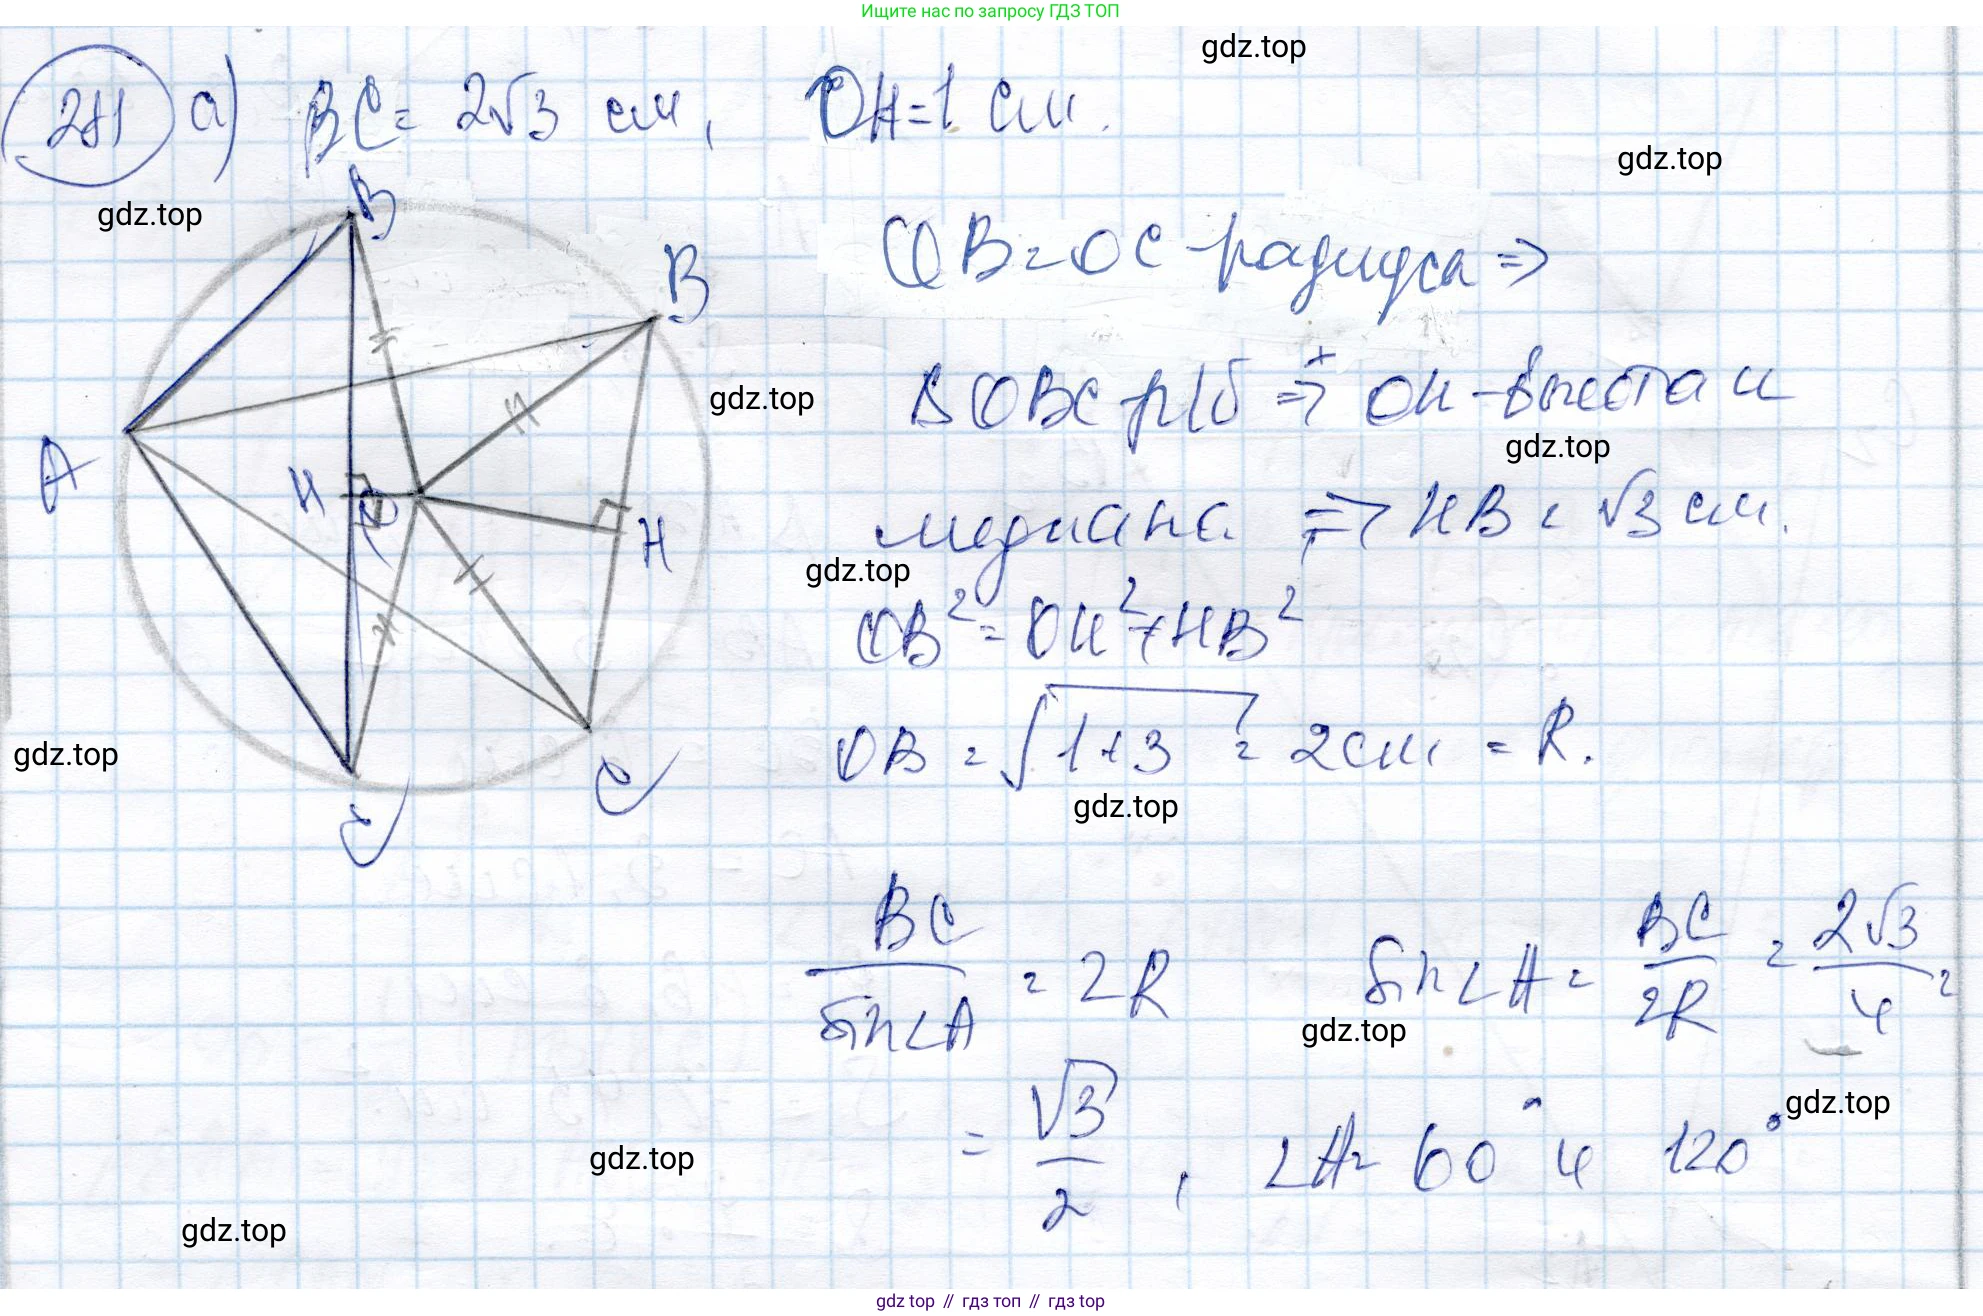 Ищите нас по запросу ГДЗ ТОП
gdz.top
281 а) BC = 2√3 см, OH = 1 см.
gdz.top
gdz.top
B
B
OB = OC - радиуса ⇒
gdz.top
Δ OBC - р/б ⇒ OH - высота и
gdz.top
A
H
O
H
медиана ⇒ HB = √3 см.
gdz.top
OB² = OH² + HB²
gdz.top
OB = √1+3 = 2 см = R.
gdz.top
C
C
BC/sin∠A = 2R sin∠A = BC/2R = 2√3/4 =
gdz.top
= √3/2, ∠A = 60° и 120°
gdz.top
gdz.top
gdz.top
gdz.top // гдз топ // гдз top